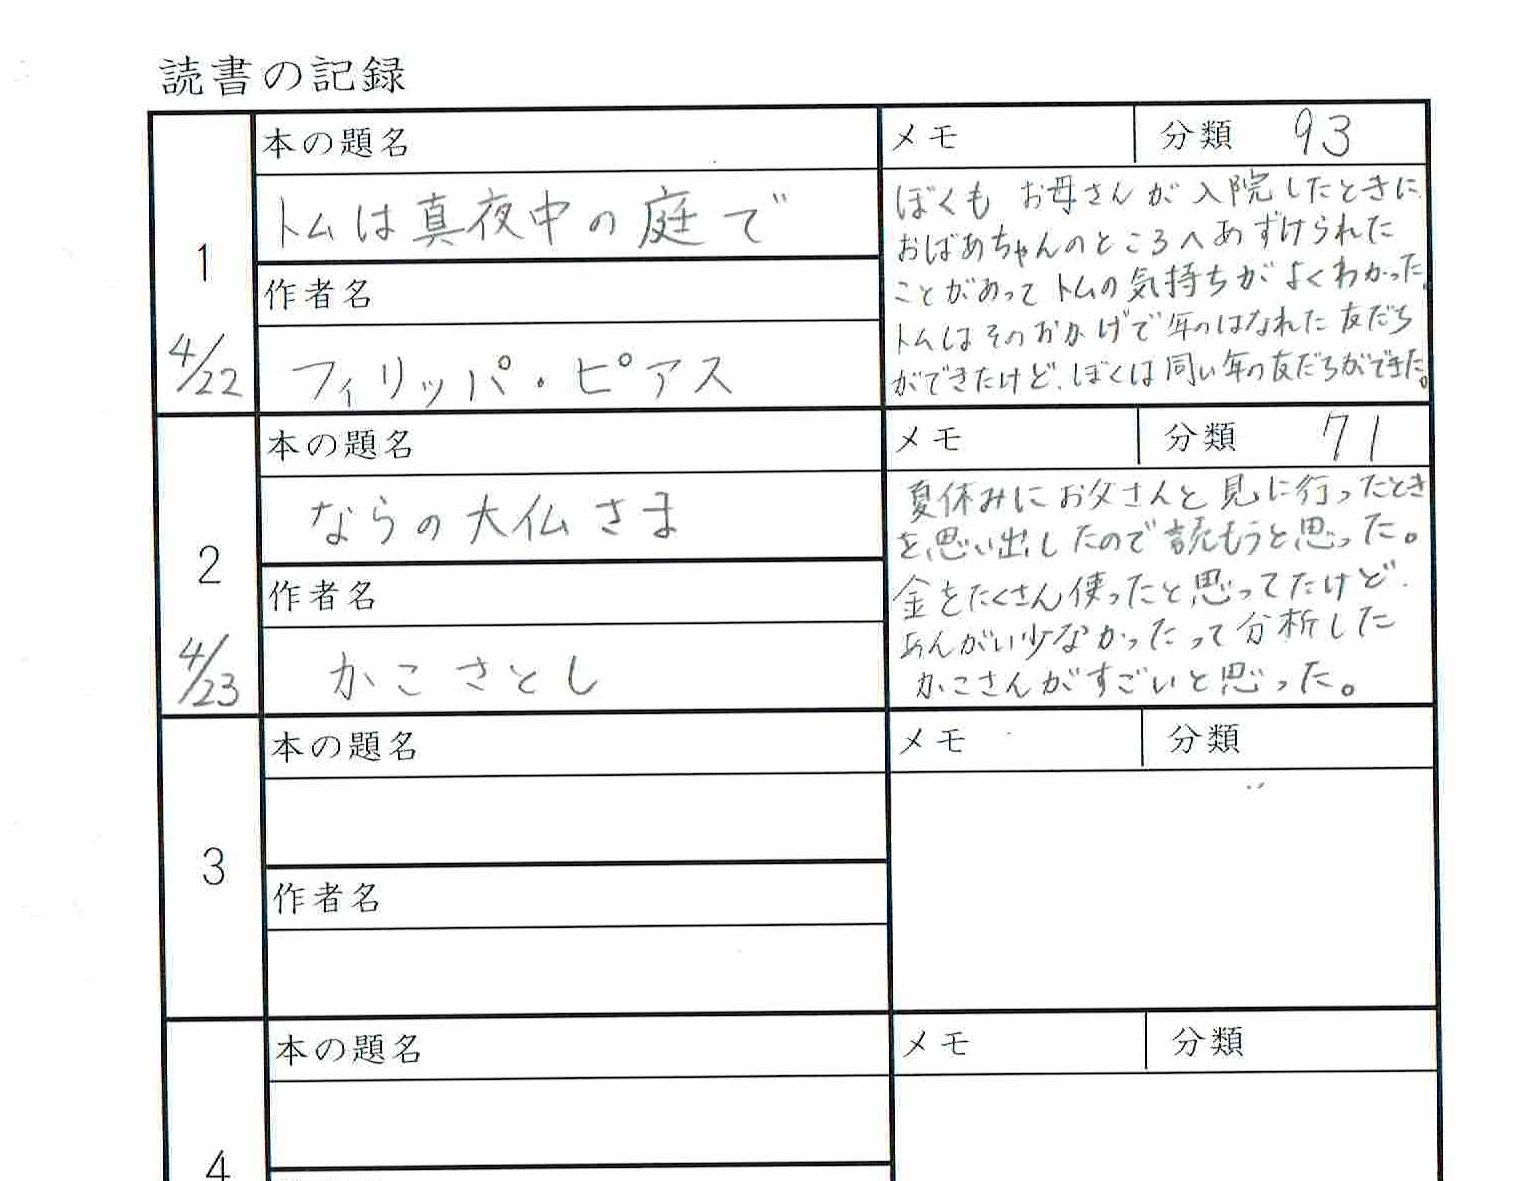 読書の記録
1
4/22
本の題名
トムは真夜中の庭で
作者名
フィリッパ・ピアス
メモ
分類 93
ぼくも お母さんが入院したときに
おばあちゃんのところへあずけられた
ことがあって トムの気持ちがよくわかった。
トムはそのおかげで年のはなれた友だち
ができたけど、ぼくは同い年の友だちができた。
2
4/23
本の題名
ならの大仏さま
作者名
かこさとし
メモ
分類 71
夏休みにお父さんと見に行ったとき
を思い出したので読もうと思った。
金をたくさん使ったと思ってたけど、
あんがい少なかったって分析した
かこさんがすごいと思った。
3
本の題名
作者名
メモ
分類
4
本の題名
メモ
分類